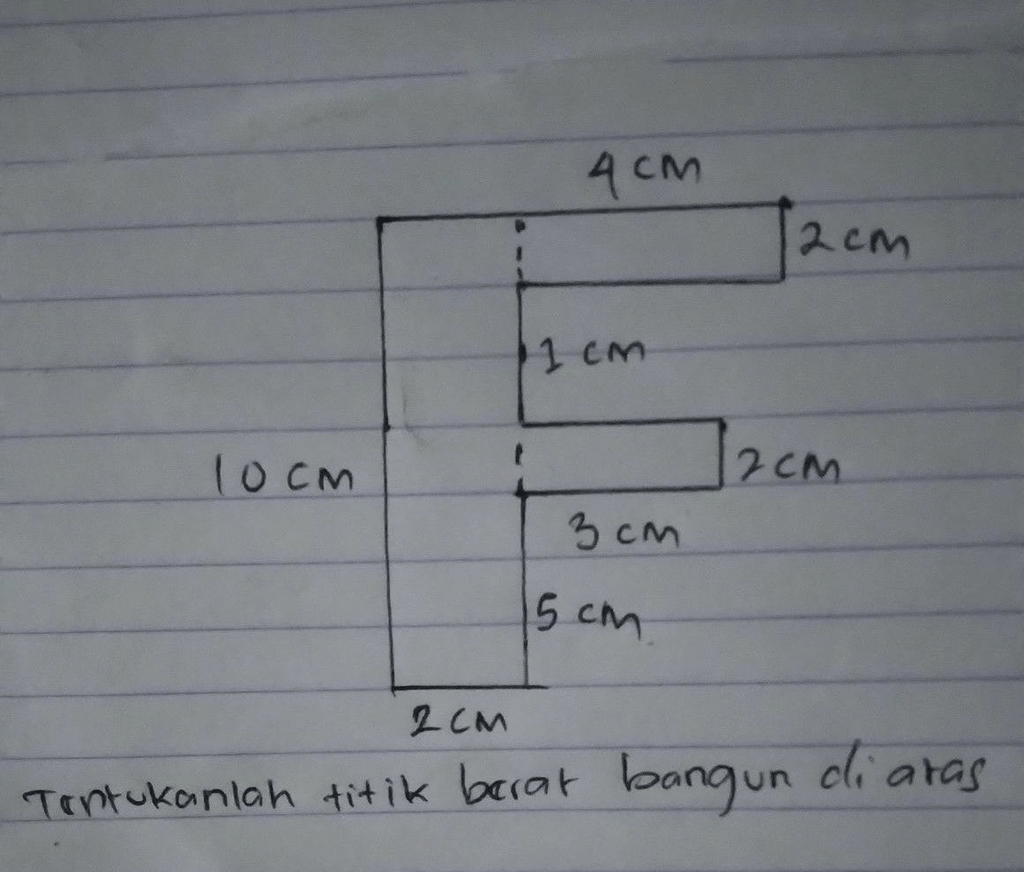 4 cm
2 cm
1 cm
10 cm
2 cm
3 cm
5 cm
2 cm
Tentukanlah titik berat bangun di atas